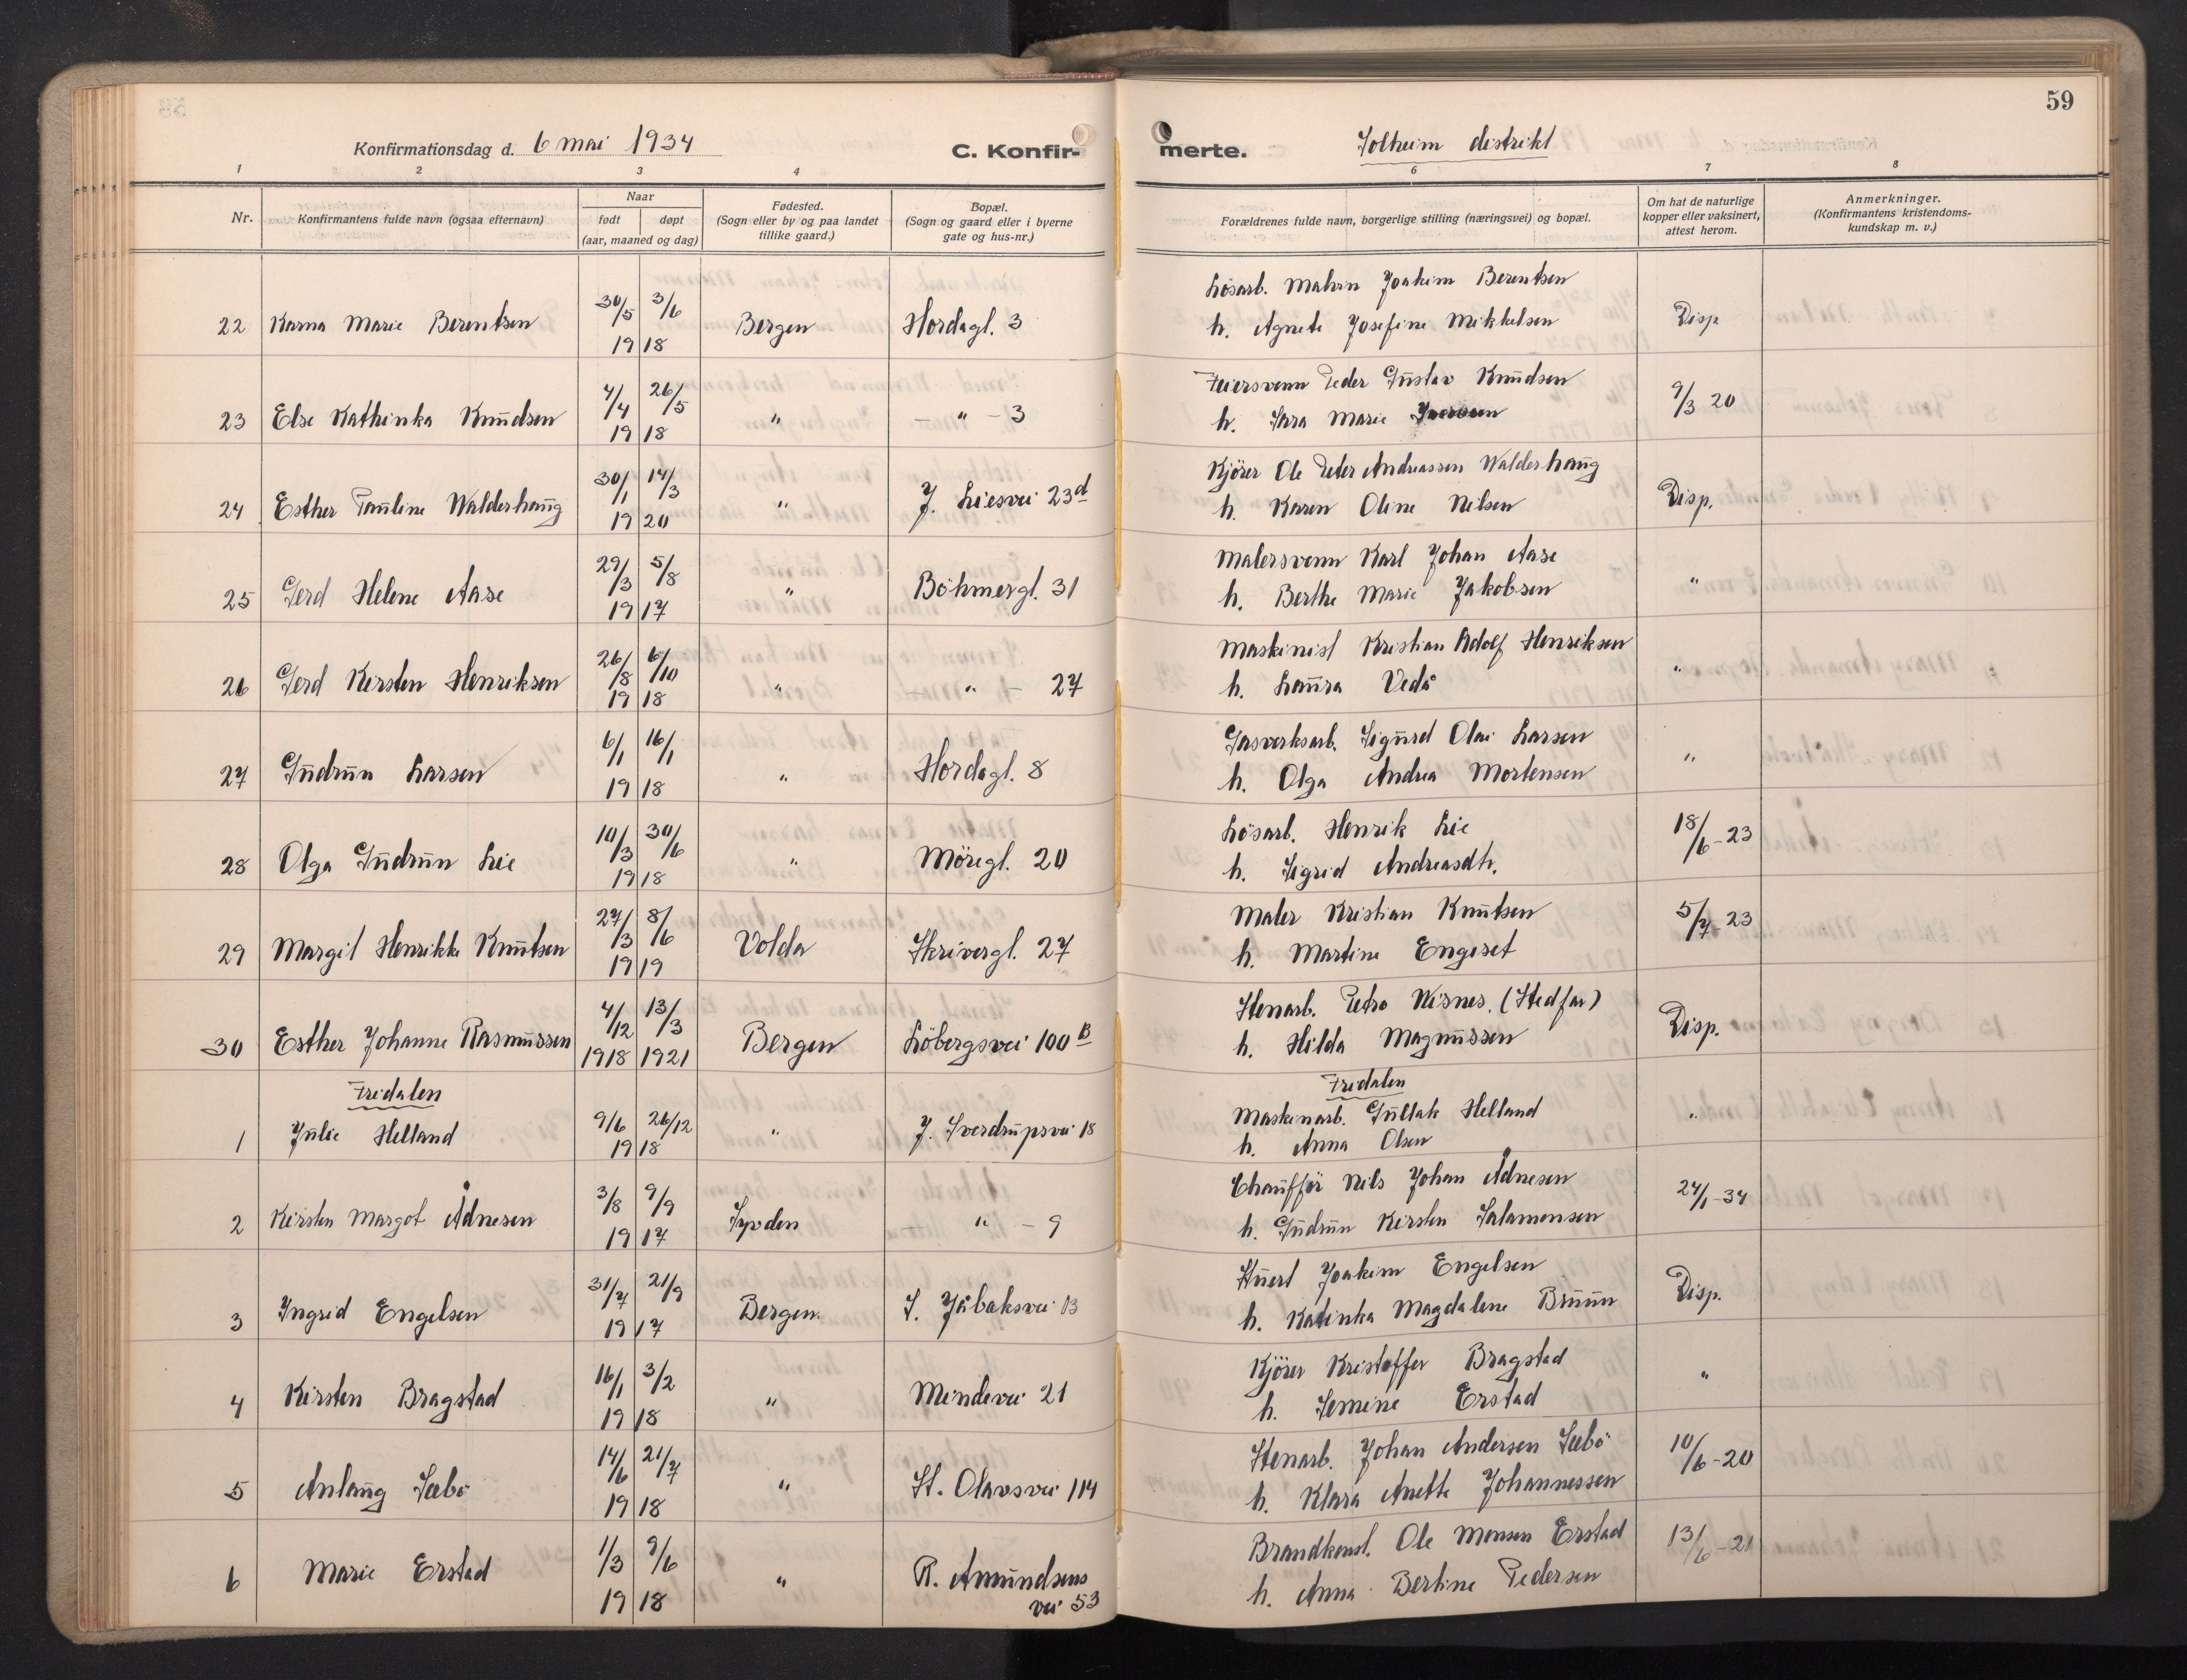 59
Konfirmationsdag d. 6 mai 1934 C. Konfir- merte. Solheim distrikt
1 2 3 4 6 7 8
Nr. Konfirmantens fulde navn (ogsaa efternavn) Naar født døpt (aar, maaned og dag) Fødested. (Sogn eller by og paa landet tillike gaard.) Bopæl. (Sogn og gaard eller i byerne gate og hus-nr.) Forældrenes fulde navn, borgerlige stilling (næringsvei) og bopæl. Om hat de naturlige kopper eller vaksinert, attest herom. Anmerkninger. (Konfirmantens kristendoms- kundskap m. v.)
Løsarb. Joakim Berentsen
22 Karna Marie Berentsen 30/5 3/6 1918 Bergen Hordagt. 3 h. Agnete Josefine Mikkelsen Disp
Feiersvenn Peder Gustav Knudsen
23 Else Kathinka Knudsen 4/4 26/5 1918 " — " — 3 h. Sara Marie Iversen 9/3 20
Kjører Ole Peter Andreassen Walderhaug
24 Esther Pauline Walderhaug 30/1 14/3 1920 " J. Liesvei 23d h. Karen Oline Nilsen Disp.
Malersvenn Karl Johan Aase
25 Gerd Helene Aase 29/3 5/8 1917 " Böhmergt. 31 h. Berthe Marie Jakobsen "
Maskinist Kristian Adolf Henriksen
26 Gerd Kirsten Henriksen 26/8 6/10 1918 " — " — 27 h. Laura Vedå "
Gasverksarb. Sigurd Olai Larsen
27 Gudrun Larsen 6/1 16/1 1918 " Hordagt. 8 h. Olga Andrea Mortensen "
Løsarb. Henrik Lie
28 Olga Gudrun Lie 10/3 30/6 1918 " Möregt. 20 h. Sigrid Andreasdtr. 18/6-23
Maler Kristian Knutsen
29 Margit Henrikke Knutsen 27/3 8/6 1919 Volda Skrivergt. 27 h. Martine Engeset 5/7-23
Stenarb. Petro Nisnes. (Stedfar)
30 Esther Johanne Rasmussen 4/12 1918 13/3 1921 Bergen Löbergsvei 100 B h. Hilda Magnussen Disp.
Fridalen Fridalen
Maskinarb. Gullak Helland
1 Julie Helland 9/6 26/12 1918 " J. Sverdrupsvei 18 h. Anna Olsen "
Chaufför Nils Johan Ådnesen
2 Kirsten Margot Ådnesen 3/8 9/9 1917 Syvden — " — 9 h. Gudrun Kirsten Salamonsen 24/1-34
Stuert Joakim Engelsen
3 Ingrid Engelsen 31/7 21/9 1917 Bergen S. Jåbaksvei 13 h. Katinka Magdalene Bruun Disp.
Kjører Kristoffer Bragstad
4 Kirsten Bragstad 16/1 3/2 1918 " Mindevei 21 h. Semine Erstad "
Stenarb. Johan Andersen Sæbö
5 Anlaug Sæbö 14/6 21/7 1918 " St. Olavsvei 114 h. Klara Anette Johannessen 10/6-20
Brandkonst. Ole Monsen Erstad
6 Marie Erstad 1/3 9/6 1918 " R. Amundsens vei 53 h. Anna Bertine Pedersen 13/6-21